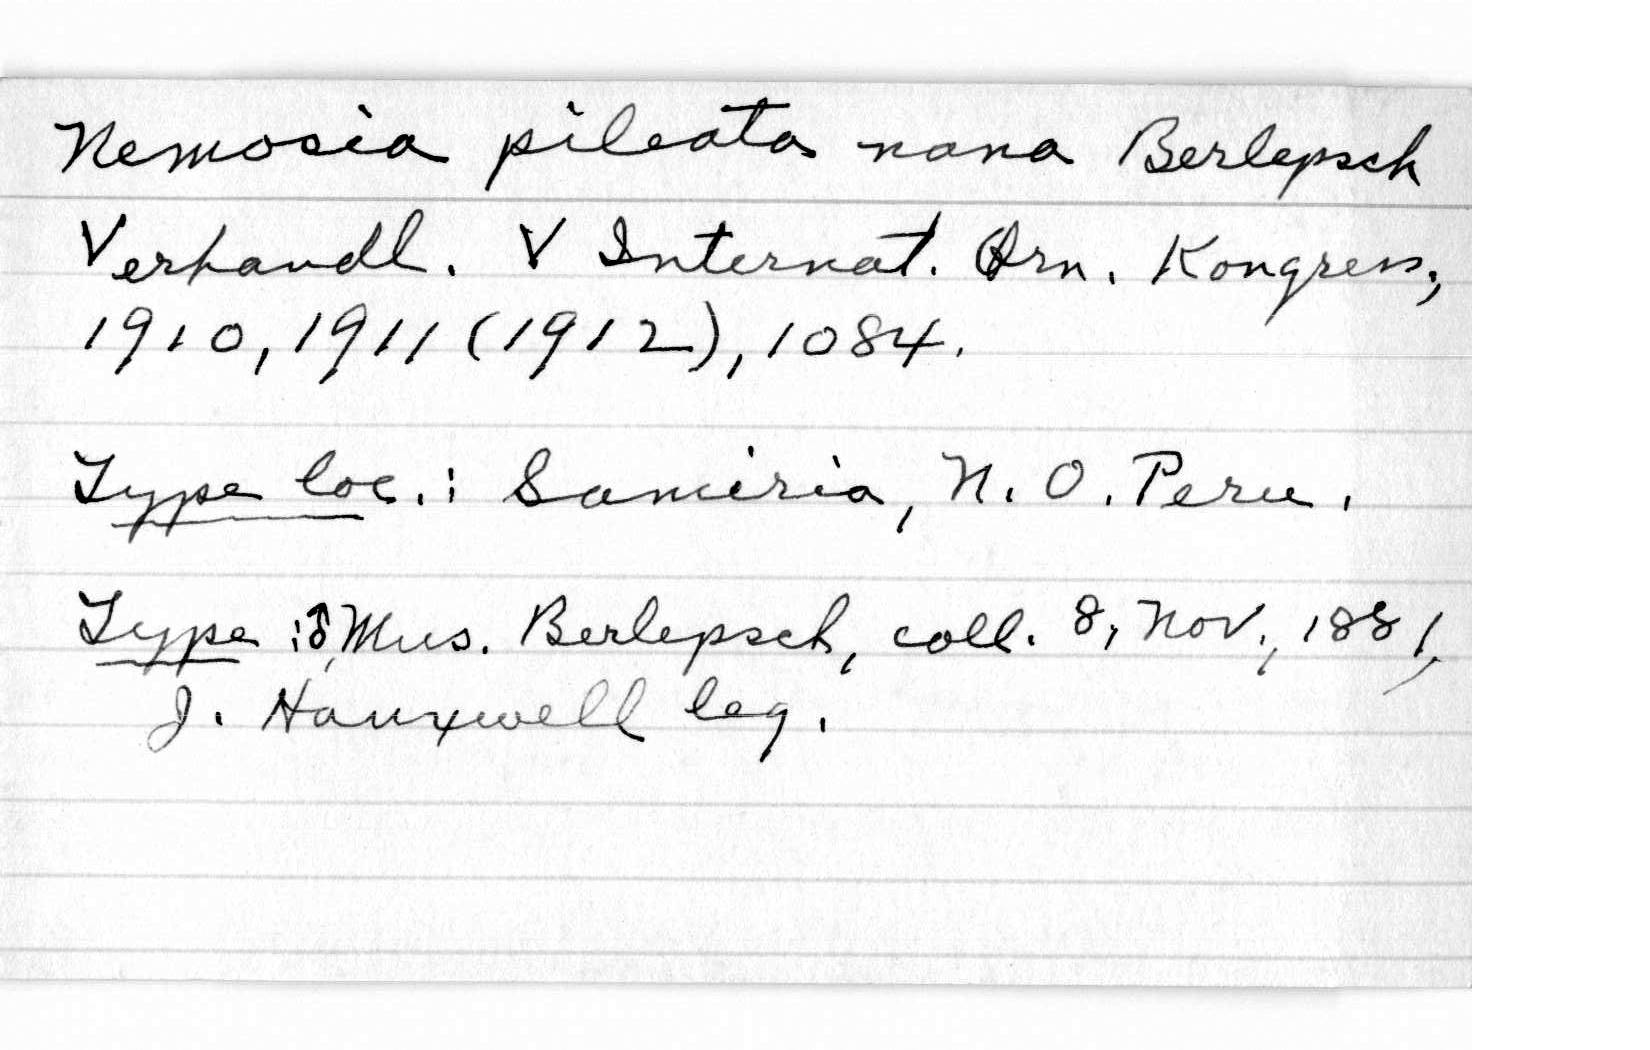 Nemosia pileata nana Berlepsch
Verhandl. V Internat. Orn. Kongress,
1910, 1911 (1912), 1084.
Type loc.: Samiria, N. O. Peru.
Type: ♂, Mus. Berlepsch, coll. 8, Nov., 1881,
J. Hauxwell leg.